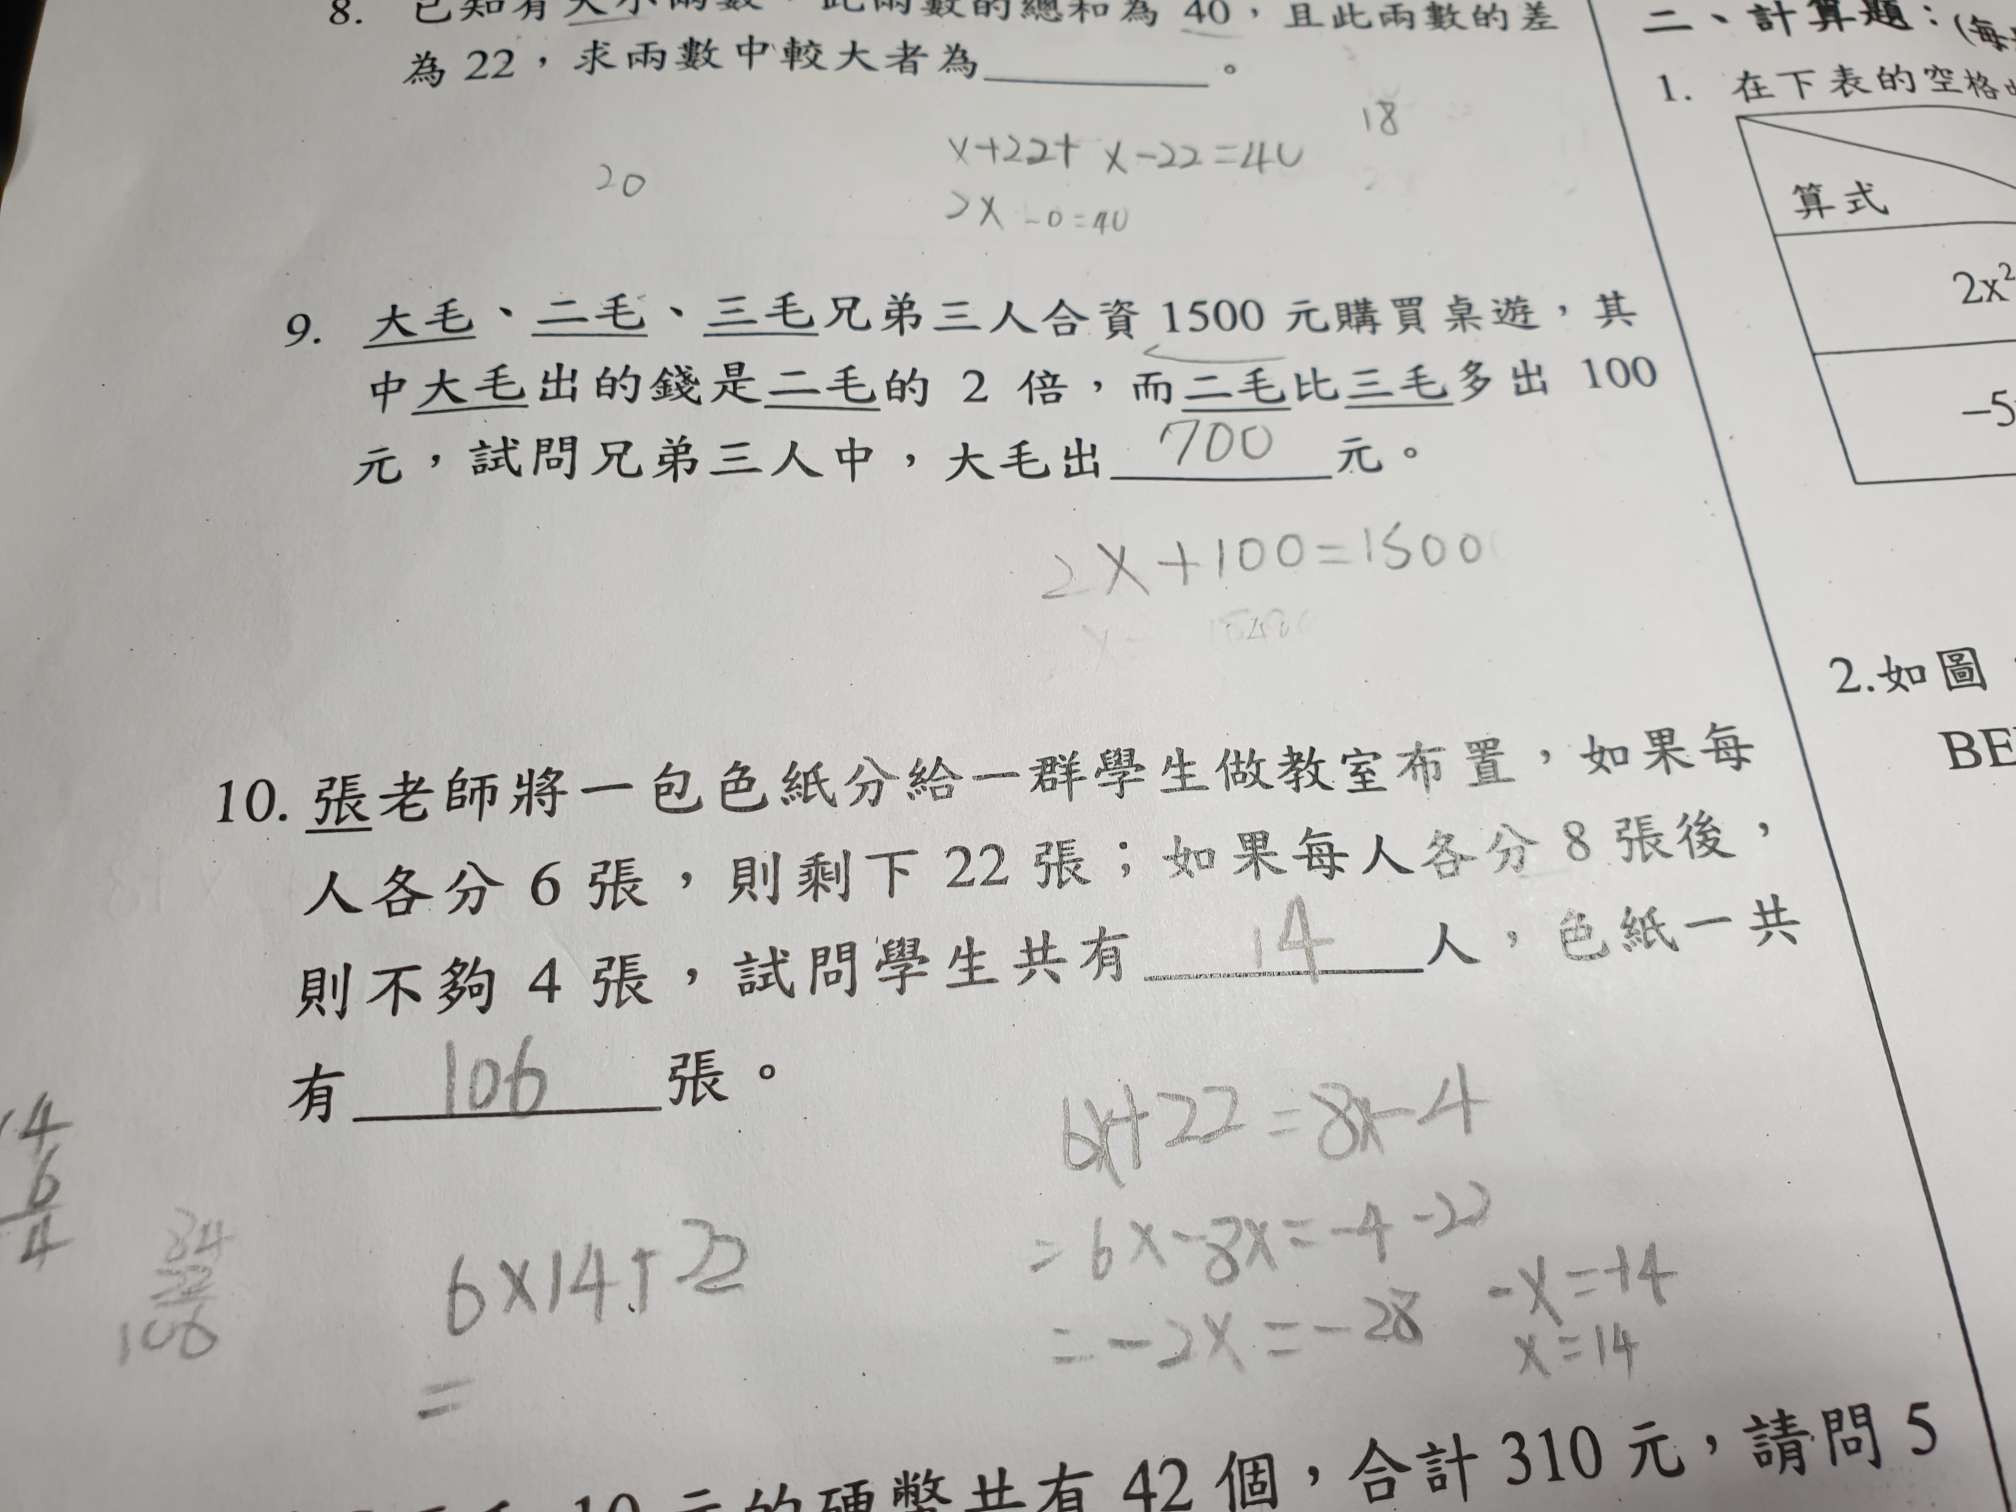 8. 已知有大小兩數，此兩數的總和為 40，且此兩數的差
為 22，求兩數中較大者為________。
18
x+22+ x-22=40
20
2x -0=40
9. 大毛、二毛、三毛兄弟三人合資 1500 元購買桌遊，其
中大毛出的錢是二毛的 2 倍，而二毛比三毛多出 100
元，試問兄弟三人中，大毛出 700 元。
2x+100=1500
10. 張老師將一包色紙分給一群學生做教室布置，如果每
人各分 6 張，則剩下 22 張；如果每人各分 8 張後，
則不夠 4 張，試問學生共有 14 人，色紙一共
有 106 張。
6x+22=8x-4
=6x-8x=-4-22
=-2x=-28
-x=+14
x=14
14
6
4
84
22
106
6x14+22
=
10 元的硬幣共有 42 個，合計 310 元，請問 5
二、計算題：(每
1. 在下表的空格
算式
2x²
-5
2.如圖
BE